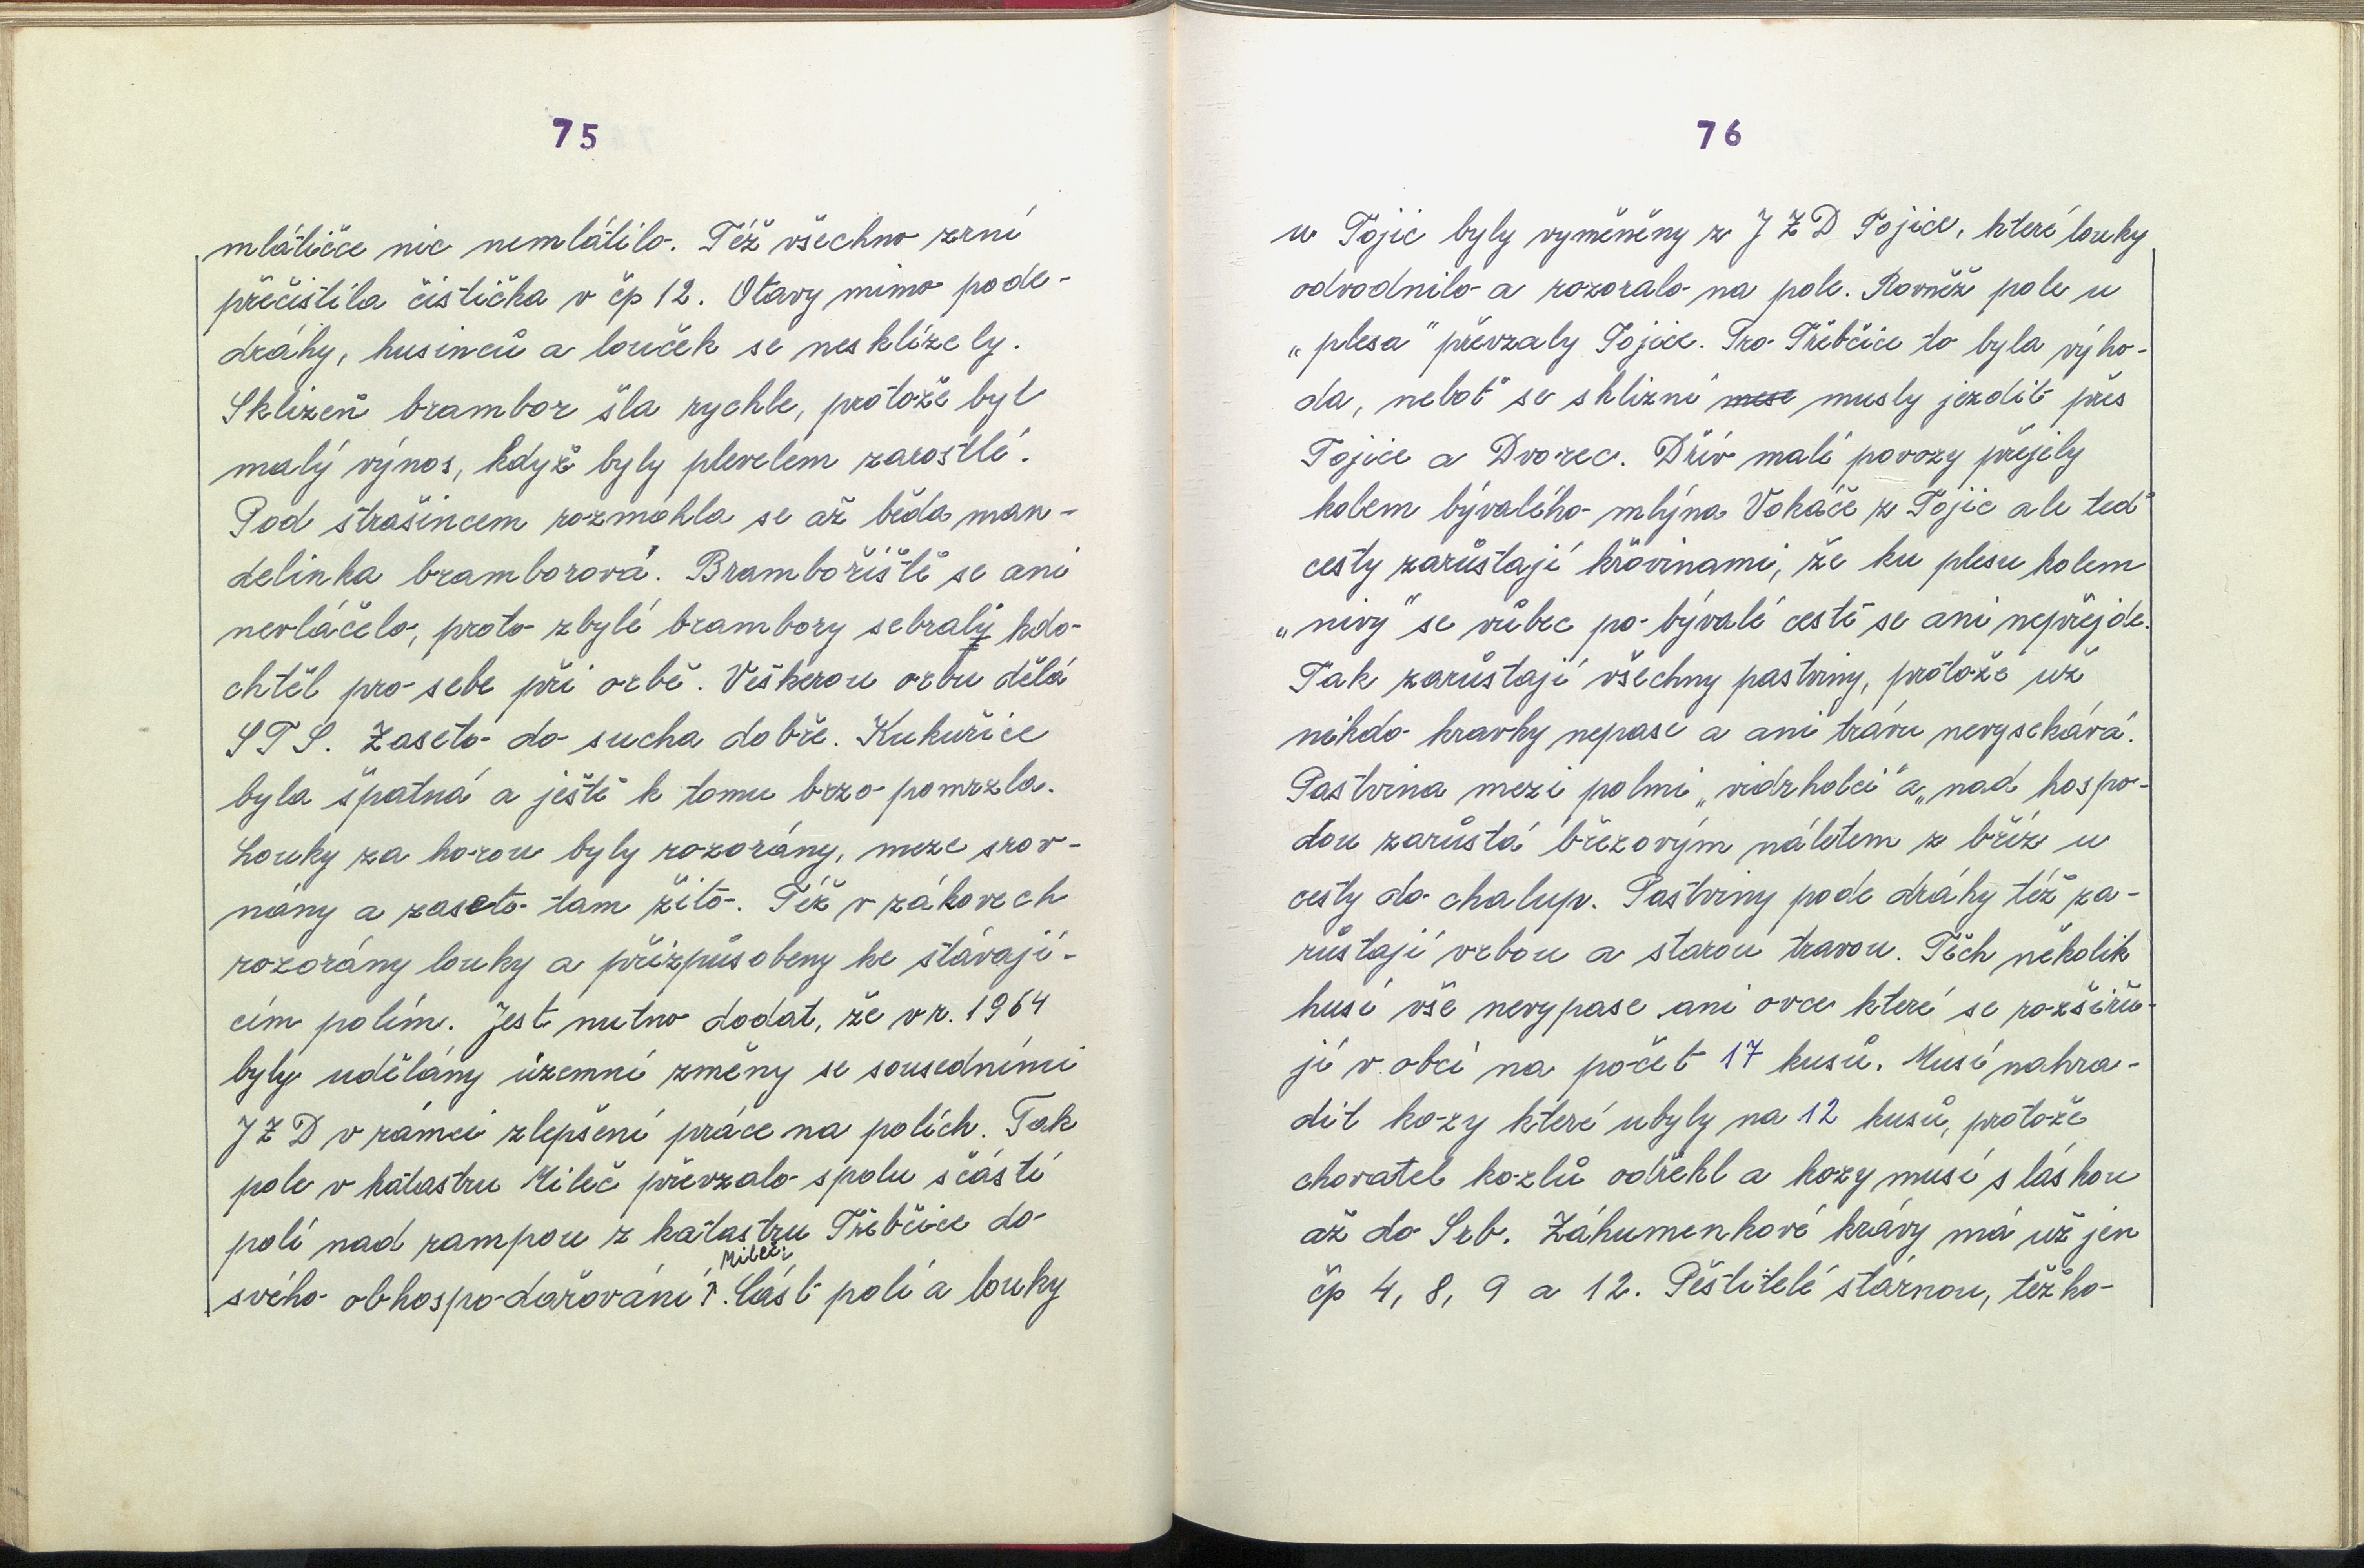 75
mlátičce nic nemlátilo. Též všechno zrní
přečistila čistička v čp 12. Otavy mimo pode-
dráhy, husinců a louček se nesklízely.
Sklizeň brambor šla rychle, protože byl
malý výnos, když byly plevelem zarostlé.
Pod strašincem rozmohla se až běda man-
delinka bramborová. Bramboriště se ani
nevláčelo, proto zbylé brambory sebraly kdo
chtěl pro sebe při orbě. Veškerou orbu dělá
STS. Zaseto do sucha dobře. Kukuřice
byla špatná a ještě k tomu brzo pomrzla.
Louky za horou byly rozorány, meze srov-
nány a zaseto tam žito. Též v zákovech
rozorány louky a přizpůsobeny ke stávají-
cím polím. Jest nutno dodat, že v r. 1964
byly udělány územní změny se sousedními
JZD v rámci zlepšení práce na polích. Tak
pole v katastru Mileč převzalo spolu s částí
polí nad rampou z katastru Třebčice do
Mileč
svého obhospodařování. Část polí a louky
76
u Tojic byly vyměněny z JZD Tojice, které louky
odvodnilo a rozoralo na pole. Rovněž pole u
„plesa" převzaly Tojice. Pro Třebčice to byla výho-
da, neboť se sklizní mese musly jezdit přes
Tojice a Dvorec. Dřív malé povozy přejely
kolem bývalého mlýna Vokáče z Tojic ale teď
cesty zarůstají křovinami, že ku plesu kolem
„nivy" se vůbec po bývalé cestě se ani nepřejde.
Tak zarůstají všechny pastviny, protože už
nikdo kravky nepase a ani trávu nevysekává.
Pastvina mezi polmi „vidrholci" a „nad hospo-
dou zarůstá březovým náletem z bříz u
cesty do chalup. Pastviny pode dráhy též za-
růstají vrbou a starou travou. Těch několik
husí vše nevypase ani ovce které se rozšiřu-
jí v obci na počet 17 kusů. Musí nahra-
dit kozy které ubyly na 12 kusů, protože
chovatel kozlů odřekl a kozy musí s láskou
až do Srb. Záhumenkové krávy má už jen
čp 4, 8, 9 a 12. Pěstitelé stárnou, těžko